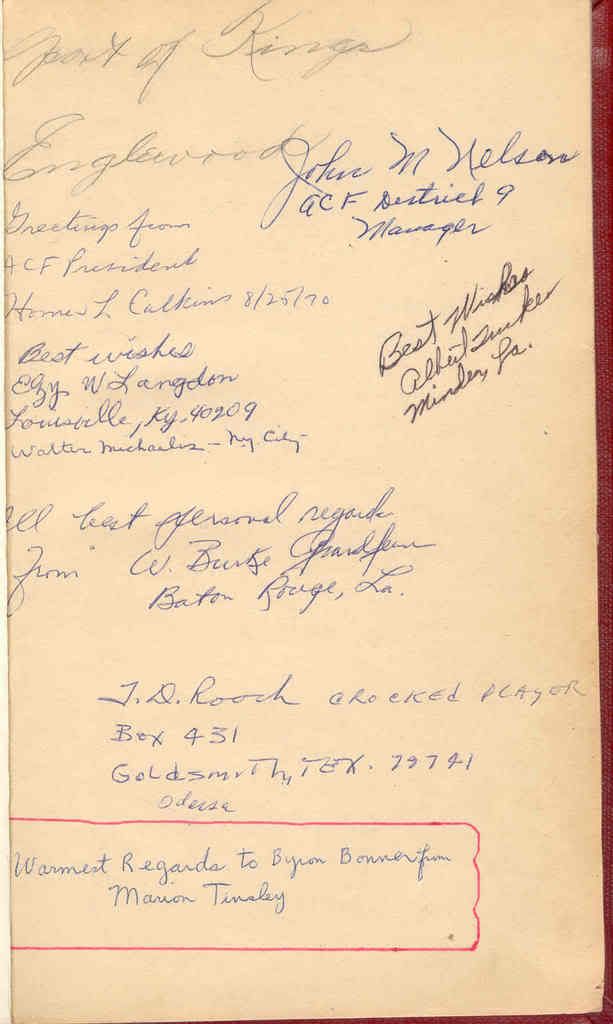 Sport of Kings
Englewood
John M Nelson
ACF District 9
Manager
Greetings from
ACF President
Homer L Calkins 8/25/70
Best Wishes
Albert Tucker
Minden, La.
Best wishes
W Langdon
Louisville, Ky. 40209
Walter Michaelis - N.Y. City
All best personal regards
From W. Burke Grandjean
Baton Rouge, La.
J.D. Rooch CROCKEd PLAYER
Box 431
Goldsmith, TEX. 79741
Odessa
Warmest Regards to Byron Bonner from
Marion Tinsley